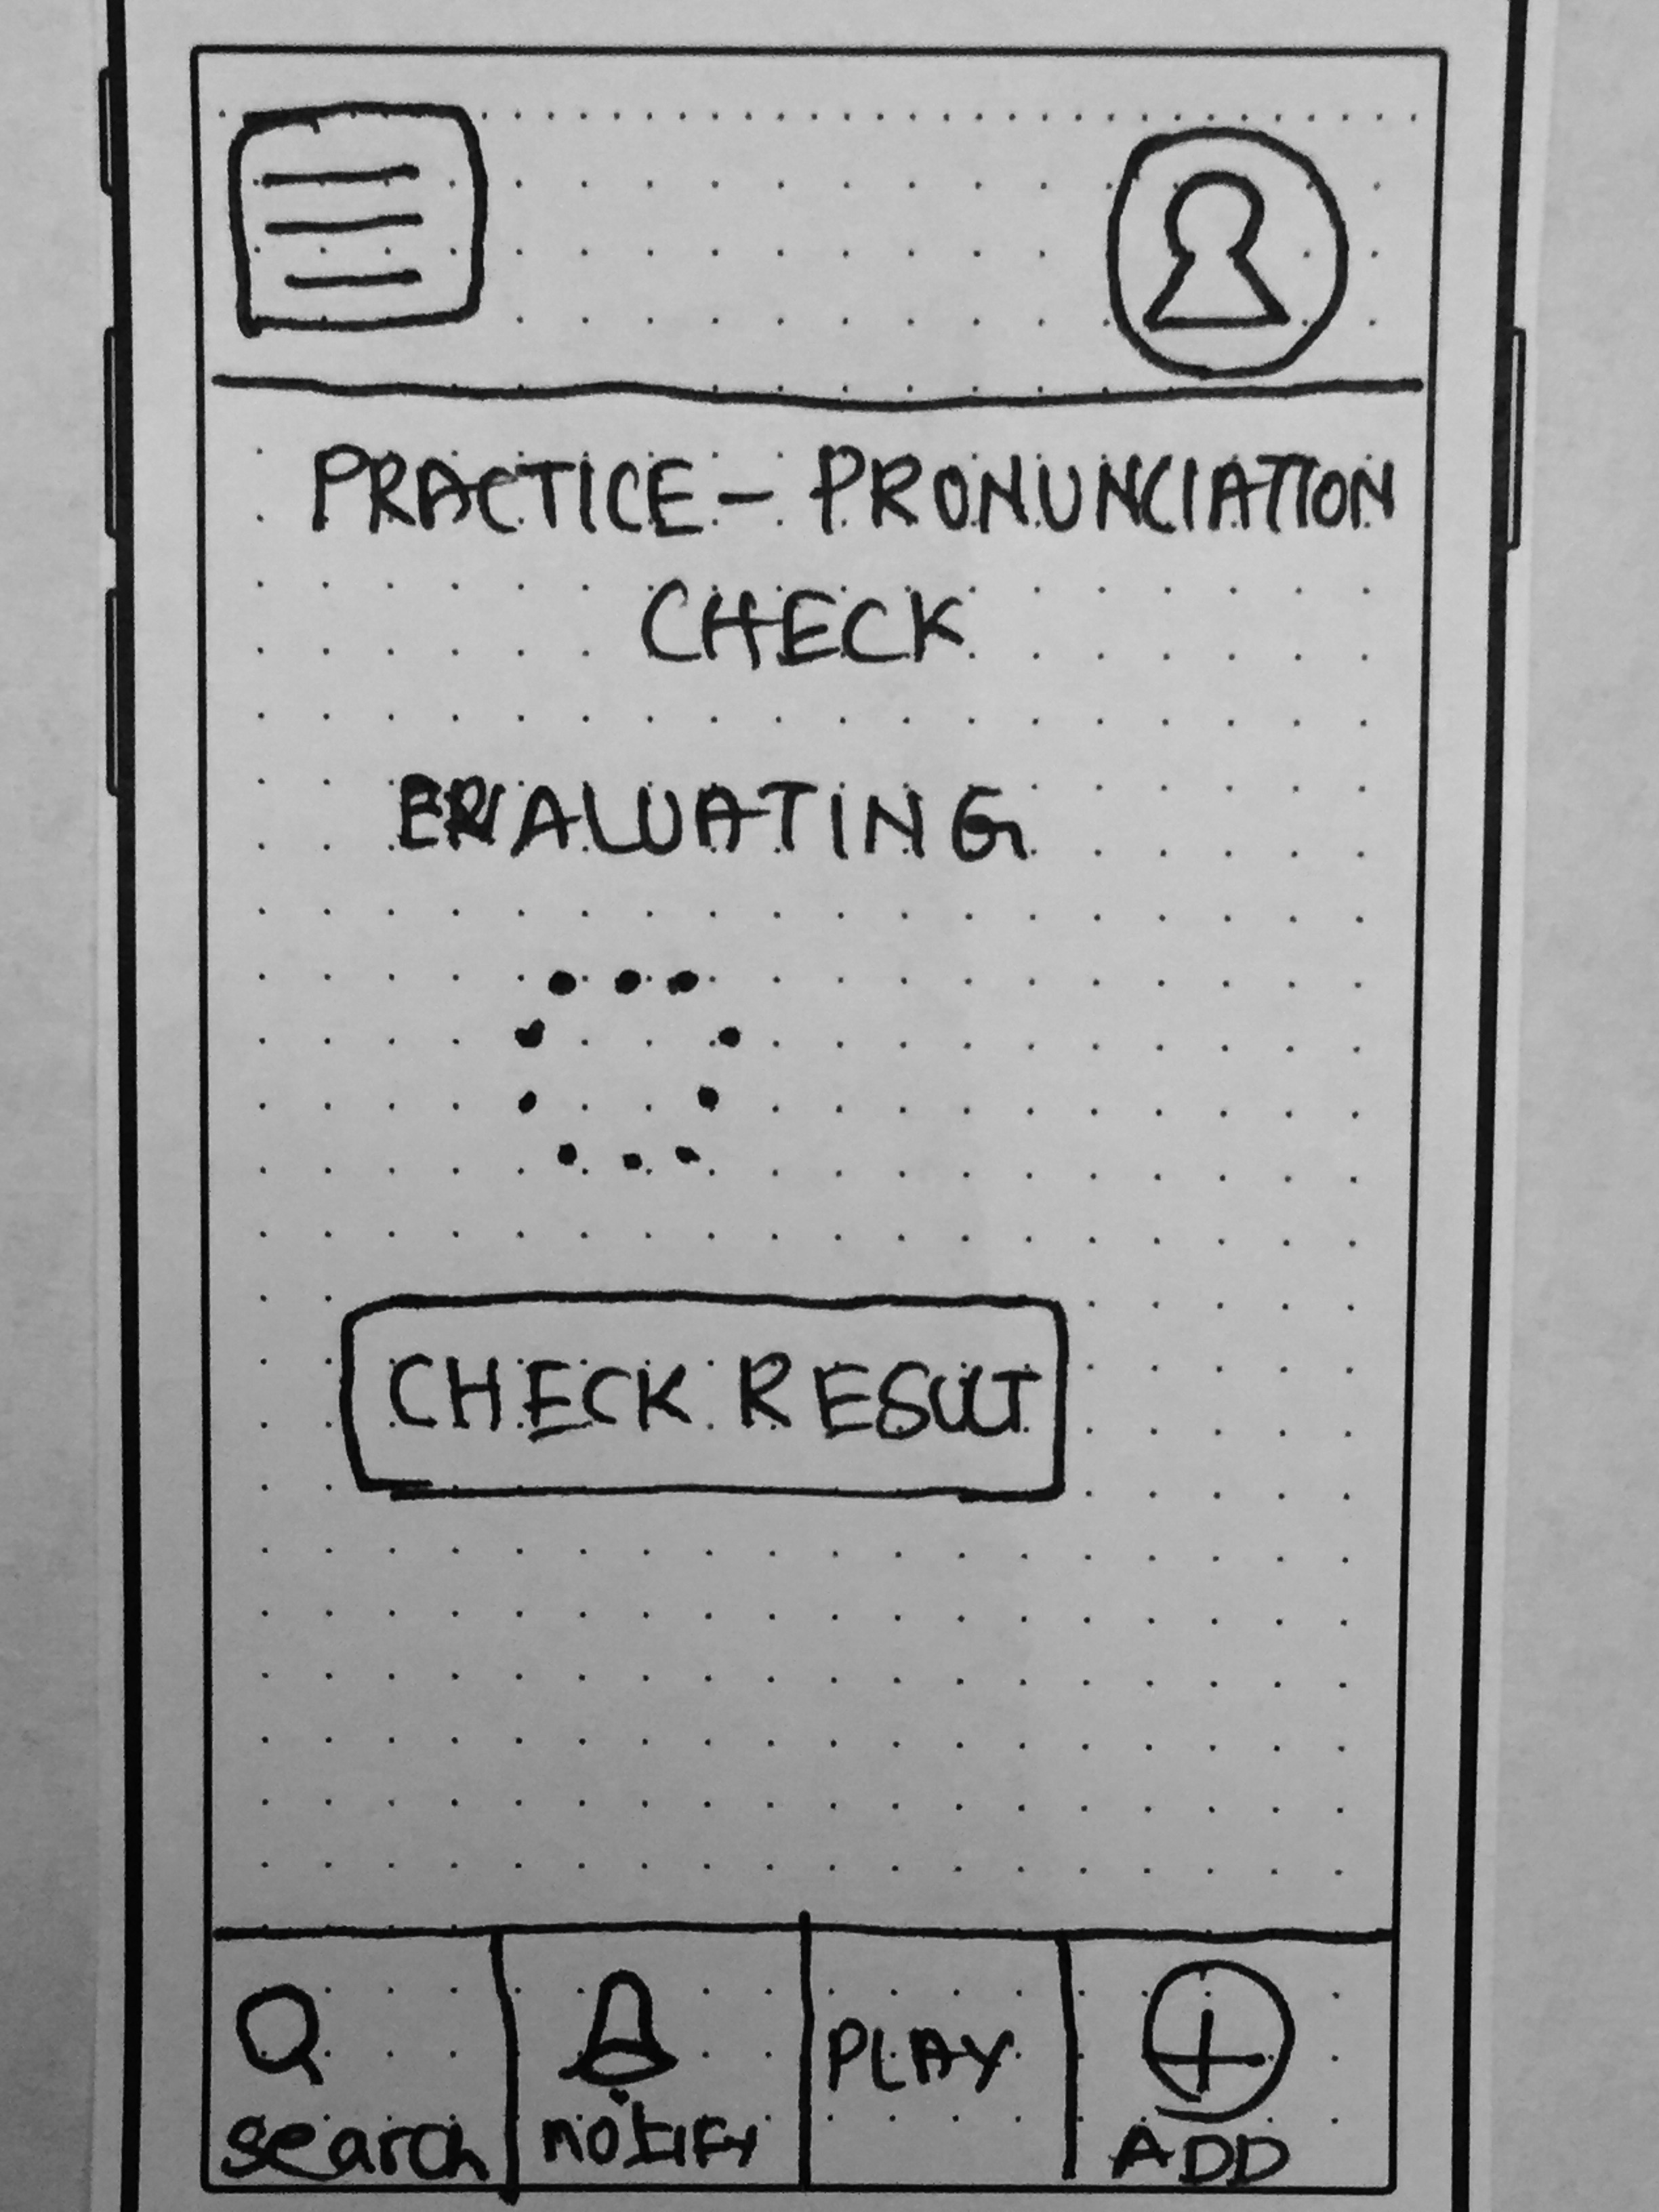 PRACTICE - PRONUNCIATION
CHECK
EVALUATING
CHECK RESULT
search
notify
PLAY
ADD